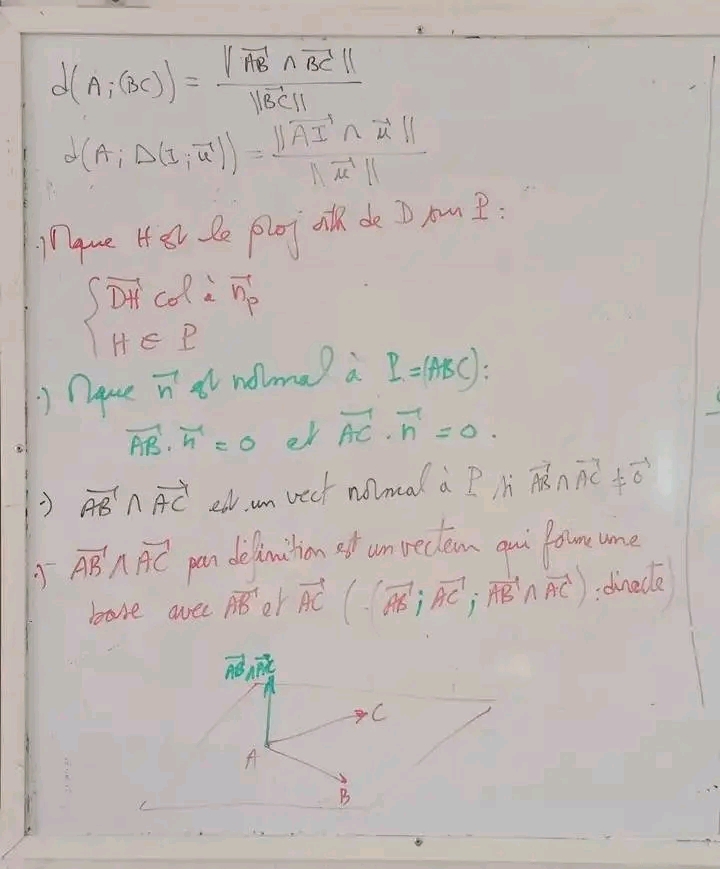 d(A;(BC)) = ||AB⃗ ∧ BC⃗|| / ||BC⃗||
d(A; Δ(I;u⃗)) = ||AI⃗ ∧ u⃗|| / ||u⃗||
.) Mque H est le proj orth de D sur P:
{ DH⃗ col à n⃗p
H ∈ P
.) Mque n⃗ est normal à P=(ABC):
AB⃗ . n⃗ = 0 et AC⃗ . n⃗ = 0.
.) AB⃗ ∧ AC⃗ est un vect normal à P si AB⃗ ∧ AC⃗ ≠ 0⃗
.) AB⃗ ∧ AC⃗ par définition est un vecteur qui forme une
base avec AB⃗ et AC⃗ ((AB⃗; AC⃗; AB⃗ ∧ AC⃗): directe)
AB⃗ ∧ AC⃗
C
A
B